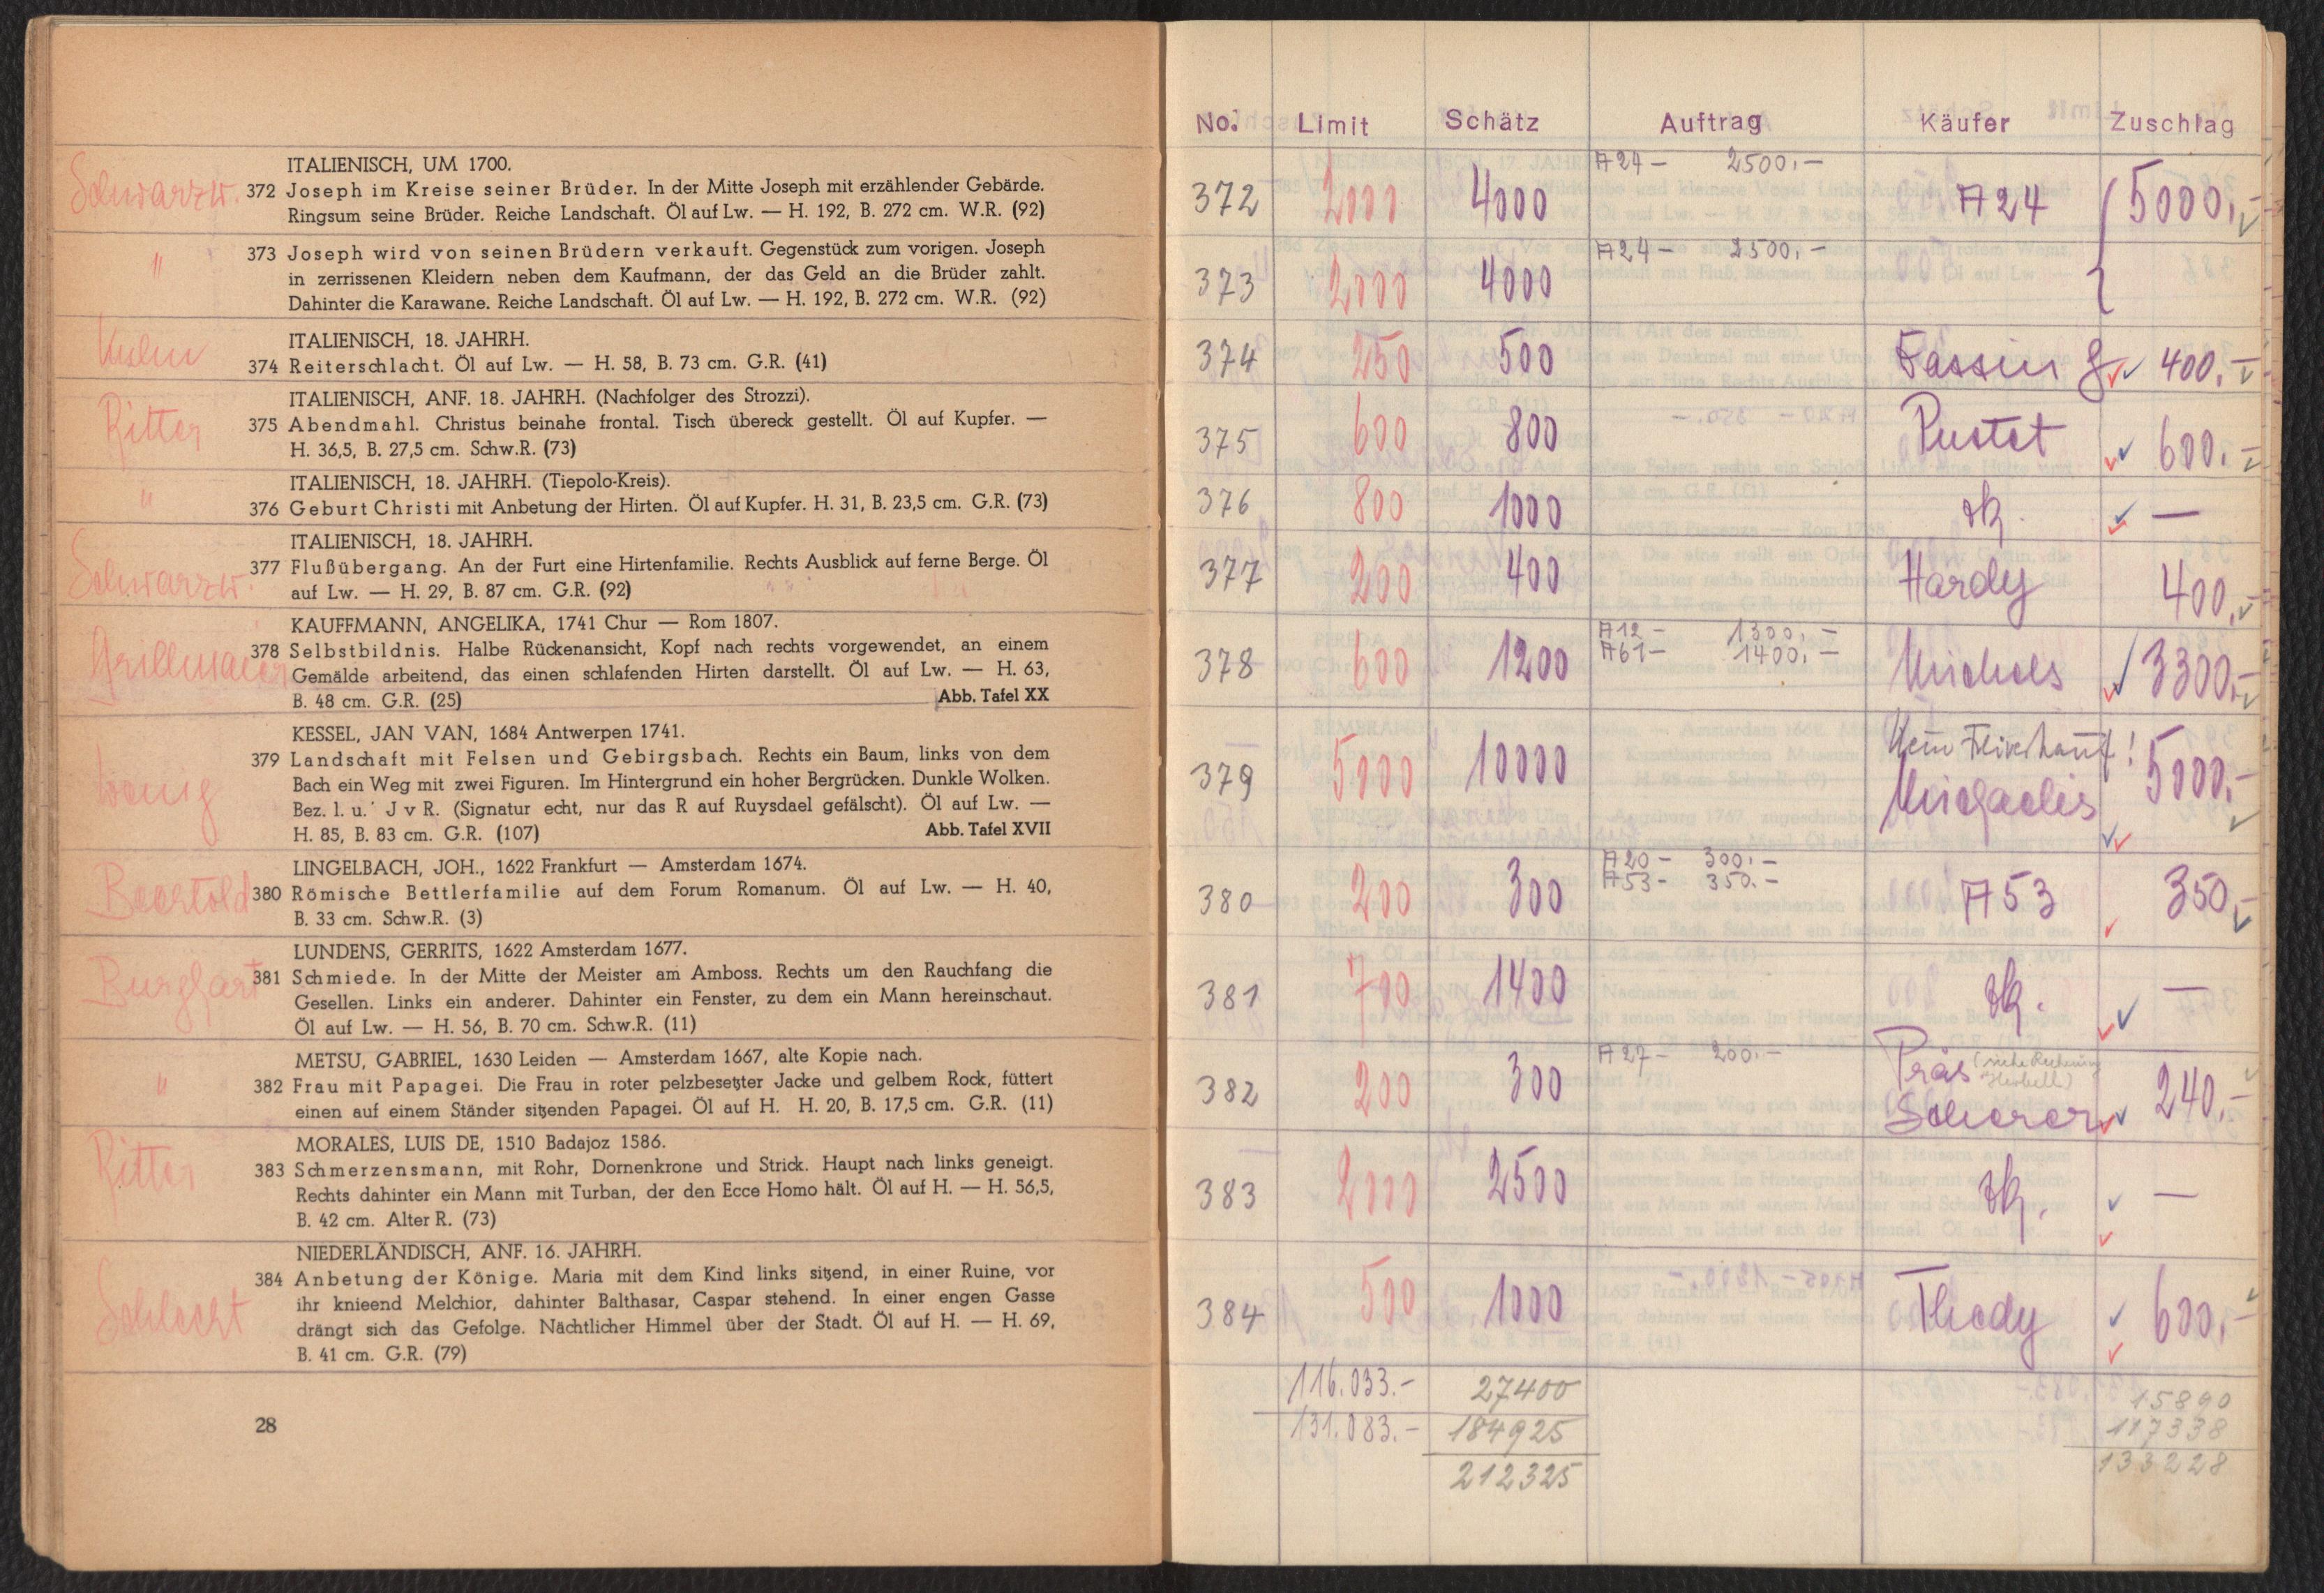 ITALIENISCH, UM 1700.
Schwarzw. 372 Joseph im Kreise seiner Brüder. In der Mitte Joseph mit erzählender Gebärde.
Ringsum seine Brüder. Reiche Landschaft. Öl auf Lw. — H. 192, B. 272 cm. W.R. (92)
" 373 Joseph wird von seinen Brüdern verkauft. Gegenstück zum vorigen. Joseph
in zerrissenen Kleidern neben dem Kaufmann, der das Geld an die Brüder zahlt.
Dahinter die Karawane. Reiche Landschaft. Öl auf Lw. — H. 192, B. 272 cm. W.R. (92)
ITALIENISCH, 18. JAHRH.
374 Reiterschlacht. Öl auf Lw. — H. 58, B. 73 cm. G.R. (41)
ITALIENISCH, ANF. 18. JAHRH. (Nachfolger des Strozzi).
Ritter 375 Abendmahl. Christus beinahe frontal. Tisch übereck gestellt. Öl auf Kupfer. —
H. 36,5, B. 27,5 cm. Schw.R. (73)
ITALIENISCH, 18. JAHRH. (Tiepolo-Kreis).
" 376 Geburt Christi mit Anbetung der Hirten. Öl auf Kupfer. H. 31, B. 23,5 cm. G.R. (73)
ITALIENISCH, 18. JAHRH.
Schwarzw. 377 Flußübergang. An der Furt eine Hirtenfamilie. Rechts Ausblick auf ferne Berge. Öl
auf Lw. — H. 29, B. 87 cm. G.R. (92)
KAUFFMANN, ANGELIKA, 1741 Chur — Rom 1807.
Grillmaier 378 Selbstbildnis. Halbe Rückenansicht, Kopf nach rechts vorgewendet, an einem
Gemälde arbeitend, das einen schlafenden Hirten darstellt. Öl auf Lw. — H. 63,
B. 48 cm. G.R. (25) Abb. Tafel XX
KESSEL, JAN VAN, 1684 Antwerpen 1741.
379 Landschaft mit Felsen und Gebirgsbach. Rechts ein Baum, links von dem
Bach ein Weg mit zwei Figuren. Im Hintergrund ein hoher Bergrücken. Dunkle Wolken.
Bez. l. u. J v R. (Signatur echt, nur das R auf Ruysdael gefälscht). Öl auf Lw. —
H. 85, B. 83 cm. G.R. (107) Abb. Tafel XVII
LINGELBACH, JOH., 1622 Frankfurt — Amsterdam 1674.
380 Römische Bettlerfamilie auf dem Forum Romanum. Öl auf Lw. — H. 40,
B. 33 cm. Schw.R. (3)
LUNDENS, GERRITS, 1622 Amsterdam 1677.
Burghart 381 Schmiede. In der Mitte der Meister am Amboss. Rechts um den Rauchfang die
Gesellen. Links ein anderer. Dahinter ein Fenster, zu dem ein Mann hereinschaut.
Öl auf Lw. — H. 56, B. 70 cm. Schw.R. (11)
METSU, GABRIEL, 1630 Leiden — Amsterdam 1667, alte Kopie nach.
" 382 Frau mit Papagei. Die Frau in roter pelzbesetzter Jacke und gelbem Rock, füttert
einen auf einem Ständer sitzenden Papagei. Öl auf H. H. 20, B. 17,5 cm. G.R. (11)
MORALES, LUIS DE, 1510 Badajoz 1586.
Ritter 383 Schmerzensmann, mit Rohr, Dornenkrone und Strick. Haupt nach links geneigt.
Rechts dahinter ein Mann mit Turban, der den Ecce Homo hält. Öl auf H. — H. 56,5,
B. 42 cm. Alter R. (73)
NIEDERLÄNDISCH, ANF. 16. JAHRH.
Schlecht 384 Anbetung der Könige. Maria mit dem Kind links sitzend, in einer Ruine, vor
ihr knieend Melchior, dahinter Balthasar, Caspar stehend. In einer engen Gasse
drängt sich das Gefolge. Nächtlicher Himmel über der Stadt. Öl auf H. — H. 69,
B. 41 cm. G.R. (79)
28
No. Limit Schätz Auftrag Käufer Zuschlag
A24 - 2500.-
372 2000 4000 A24 5000.-
A24 - 2500.-
373 2000 4000
374 250 500 400.-
375 600 800 Pustet 600.-
376 800 1000 —
377 200 400 Hardy 400.-
A12 - 1300.-
A61 - 1400.-
378 600 1200 3300.-
Kein !
379 5000 10000 Michaelis 5000.-
A20 - 300.-
A53 - 350.-
380 200 300 A53 350.-
381 700 1400 —
A27 - 200.-
Präs (siehe Rechnung
382 200 300 Scherer 240.-
383 2000 2500 —
384 500 1000 Thody 600.-
116.033.- 27400 15890
131.083.- 184925 117338
212325 133228